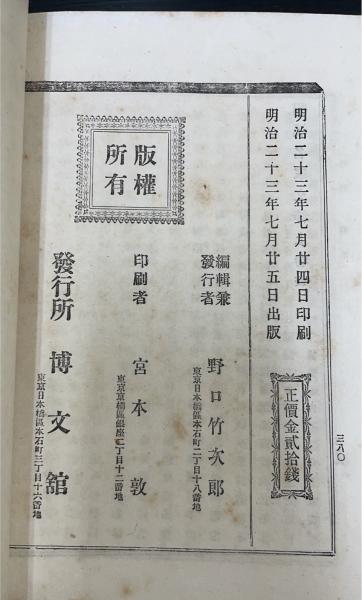 三八〇
明治二十三年七月廿四日印刷
明治二十三年七月廿五日出版
正價金貳拾錢
版權
所有
編輯兼
發行者
野口竹次郎
東京日本橋區本石町二丁目十八番地
印刷者
宮本敦
東京京橋區銀座二丁目十二番地
發行所
博文舘
東京日本橋區本石町三丁目十六番地